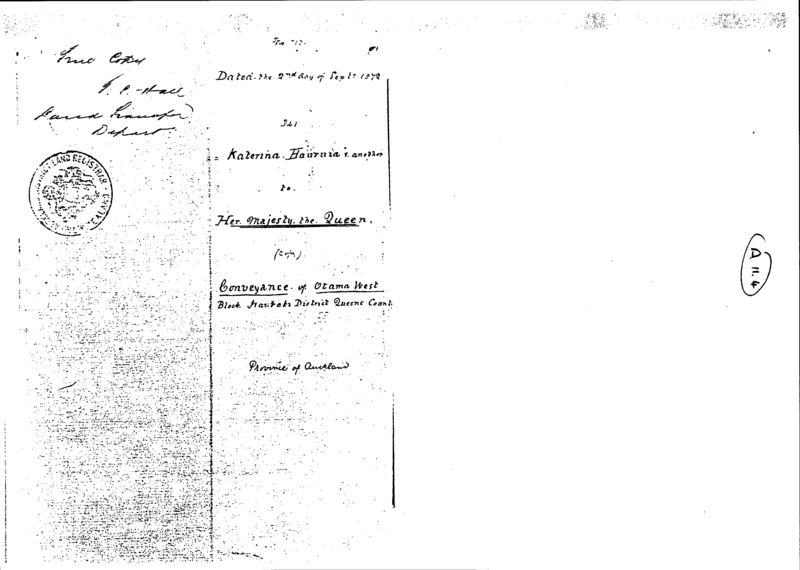 True Copy
Land Transfer
Depart
DISTRICT LAND REGISTRAR
Dated the 2nd day of Sept. 1872
Katerina Hauruia & another
to
Her Majesty the Queen.
(Copy)
Conveyance of Otama West
Block District Queens County
Province of Auckland
A 11.4